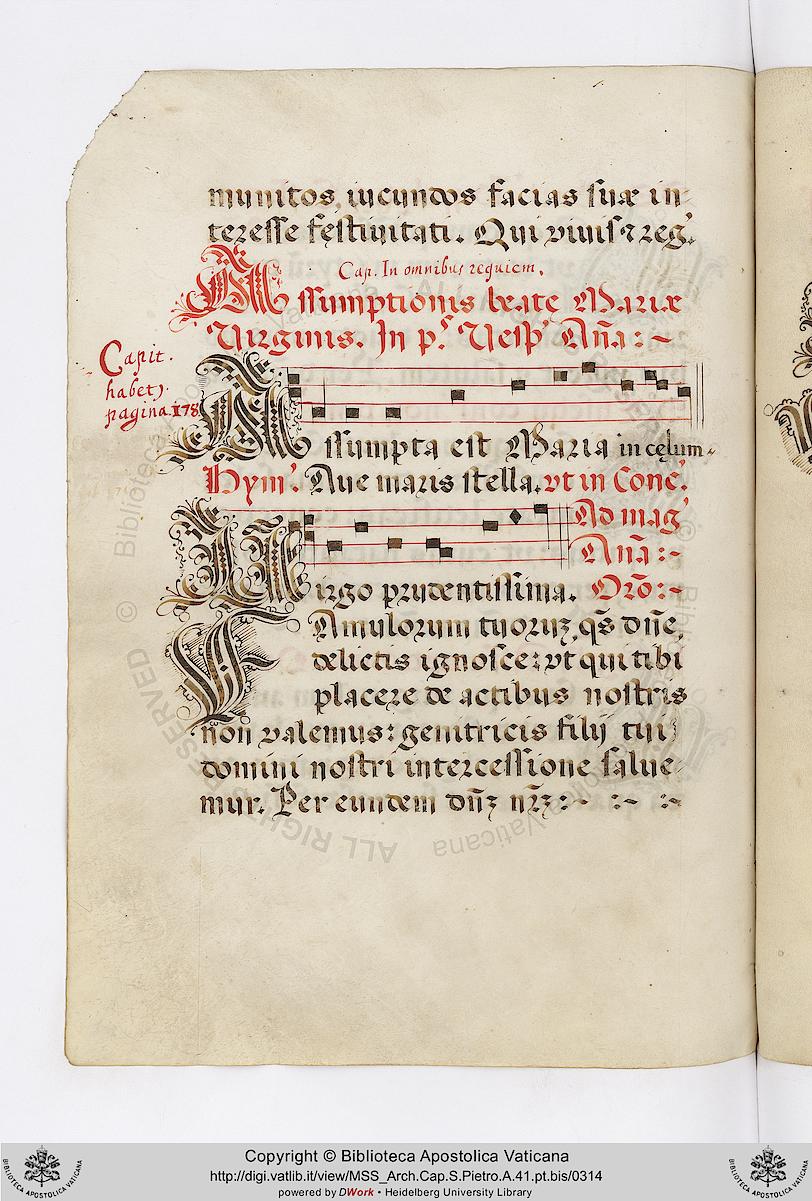 munitos, iucundos facias suæ in-
teresse festiuitati. Qui viuis ⁊ reg.
Cap. In omnibus requiem.
Assumptionis beate Mariæ
Virginis. In p.s Vesp' Aña:~
Capit.
habetʒ.
pagina 178
Assumpta est Maria in cęlum
Hym'. Aue maris stella. vt in Conc'.
Ad mag'
Aña:~
Virgo prudentissima. Orõ:~
FAmulorum tuoruʒ, qs̃ dñe,
delictis ignosce: vt qui tibi
placere de actibus nostris
non valemus: genitricis filij tui
domini nostri intercessione salue-
mur. Per eundem dñʒ nr̃ʒ:~ :~ :~
© Biblioteca Apostolica Vaticana
ALL RIGHTS RESERVED
Copyright © Biblioteca Apostolica Vaticana
http://digi.vatlib.it/view/MSS_Arch.Cap.S.Pietro.A.41.pt.bis/0314
powered by DWork • Heidelberg University Library